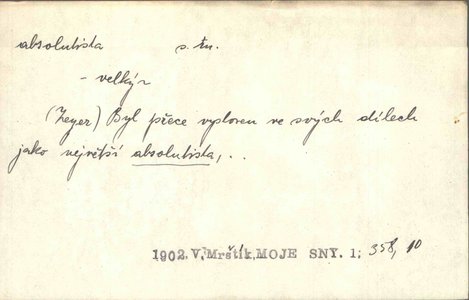 absolutista s. m.
- velký ~
(Zeyer) Byl přece vysloven ve svých dílech
jako největší absolutista, . .
1902. V. Mrštík, MOJE SNY. 1; 358, 10